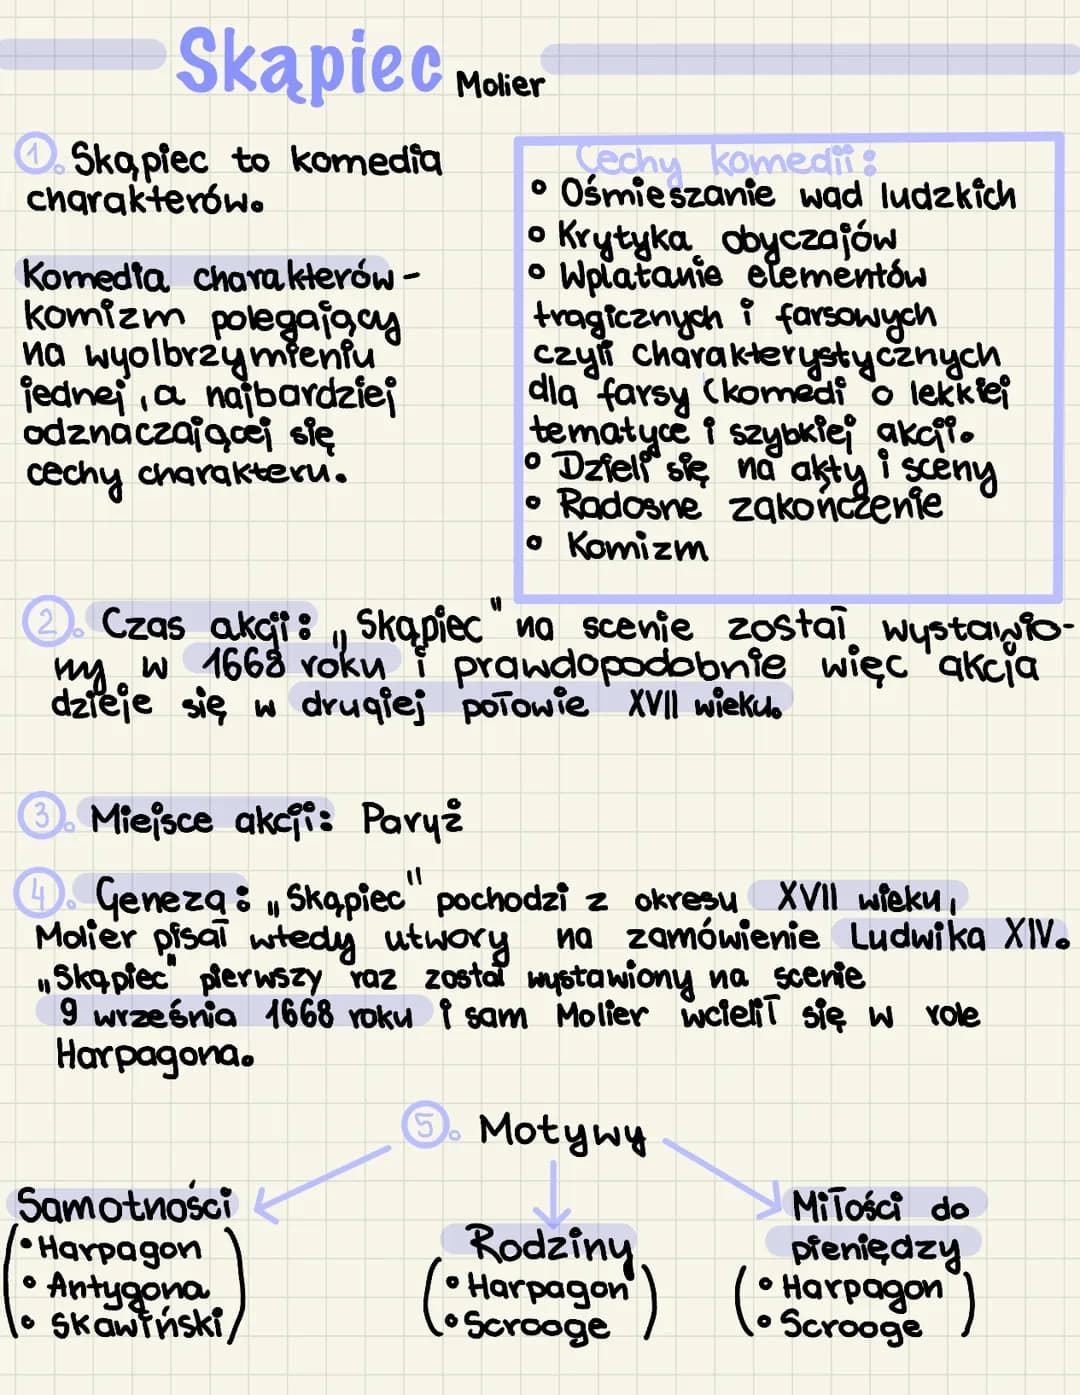 Skąpiec Molier
1. Skąpiec to komedia
charakterów.
Komedia charakterów -
komizm polegający
na wyolbrzymieniu
jednej, a najbardziej
odznaczającej się
cechy charakteru.
Cechy komedii:
• Ośmieszanie wad ludzkich
• Krytyka obyczajów
• Wplatanie elementów
tragicznych i farsowych
czyli charakterystycznych
dla farsy (komedi o lekkiej
tematyce i szybkiej akcji.
• Dzieli się na akty i sceny
• Radosne zakończenie
• Komizm
2. Czas akcji: „Skąpiec" na scenie został wystawio-
ny w 1668 roku i prawdopodobnie więc akcja
dzieje się w drugiej połowie XVII wieku.
3. Miejsce akcji: Paryż
4. Geneza: „Skąpiec" pochodzi z okresu XVII wieku,
Molier pisał wtedy utwory na zamówienie Ludwika XIV.
„Skąpiec" pierwszy raz został wystawiony na scenie
9 września 1668 roku i sam Molier wcielił się w role
Harpagona.
5. Motywy
Samotności
(• Harpagon
• Antygona
• Skawiński)
Rodziny
(• Harpagon
• Scrooge)
Miłości do
pieniędzy
(• Harpagon
• Scrooge)